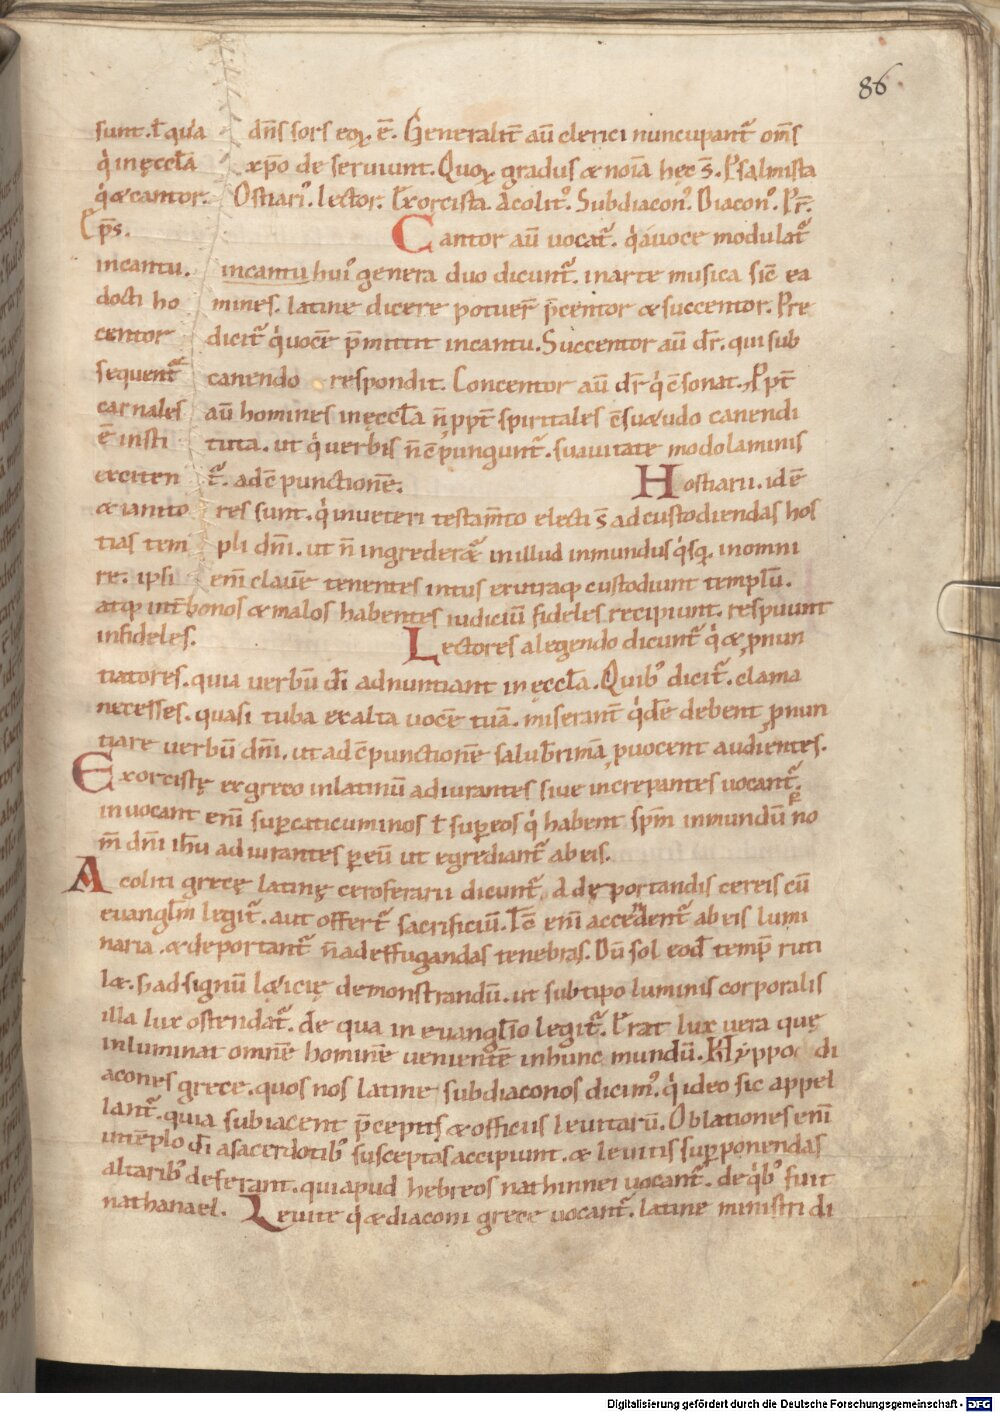 86
sunt. ł quia dn̄s sors eoꝝ ē. Generalit̄ aū clerici nuncupant᷑ om̄s
q̇ in ęccl̄a xp̄o de seruiunt. Quoꝝ gradus & noīa hęc s̄. Psalmista
q̇ & cantor. Ostiari᾽. lector. Exorcista. Acolit᾽. Subdiacon᾽. Diacon᾽. Pr̄.
Ep̄s. Cantor aū uocat᷑. q̇a uoce modulat᷑
in cantu. in cantu hui᾽ genera duo dicunt᷑. in arte musica sic̄ ea
docti ho mines. latine dicere potuer̄ p̄centor & succentor. Pre
centor dicit᷑ q̇ uocē p̄mittit in cantu. Succentor aū dr̄. qui sub
sequent᷑ canendo respondit. Concentor aū dr̄ q̇ c̄sonat. Ppt̄
carnales aū homines in ęccl̄a n̄ ppt̄ spiritales c̄suetudo canendi
ē insti tuta. ut q̇ uerbis n̄ c̄pungunt᷑. suauitate modolaminis
exciten t᷑. ad c̄punctionē. Hostiarii. idē
& ianito res sunt. q̇ in ueteri testam̄to electi s̄ ad custodiendas hos
tias tem pli dn̄i. ut n̄ ingrederet᷑ in illud inmundus q̇sq. in omni
re. ipsi eni᷑ clauē tenentes intus extraq custodiunt templū.
atq int̄ bonos & malos habentes iudiciū fideles recipiunt. respuunt
infideles. Lectores a legendo dicunt᷑ q̇ & pnun
tiatores. quia uerbū dī adnuntiant in ęccl̄a. Quib᾽ dicit᷑. clama
ne cesses. quasi tuba exalta uocē tuā. miserant᷑ q̇dē debent pnun
tiare uerbū dn̄i. ut ad c̄punctionē salub̄rimā puocent audientes.
Exorcistę ex greco in latinū adiurantes siue increpantes uocant᷑.
inuocant enī suꝑ caticuminos ł suꝑ eos q̇ habent sp̄m inmundū ꝑ no
m̄ dn̄i ih̄u adiurantes ꝑ eū ut egrediant᷑ ab eis.
Acoliti grecę latinę ceroferarii dicunt᷑. a dęportandis cereis cū
euangl̄m legit᷑. aut offert᷑ sacrificiū. Tc̄ enī accendent᷑ ab eis lumi
naria. & deportant᷑ n̄ ad effugandas tenebras. Dū sol eod̄ temp̄ ruti
l&. s; ad signū lęticię demonstrandū. ut sub tipo luminis corporalis
illa lux ostendat᷑. de qua in euangl̄io legit᷑. Erat lux uera quę
inluminat omnē hominē uenientē in hunc mundū. Hyppo di
acones grece. quos nos latine subdiaconos dicim᾽. q̇ ideo sic appel
lant᷑. quia subiacent p̄ceptis & officiis leuitarū. Oblationes enī
in tēplo dī a sacerdotib᾽ susceptas accipiunt. & leuitis suꝑponendas
altarib᾽ deferant. qui apud hebreos nathinnei uocant᷑. de q̇b᾽ fuit
nathanael. Leuite q̇ & diaconi grece uocant᷑. latine ministri di
Digitalisierung gefördert durch die Deutsche Forschungsgemeinschaft - DFG